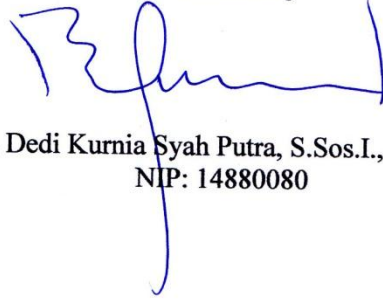 Dedi Kurnia Syah Putra, S.Sos.I.,
NIP: 14880080